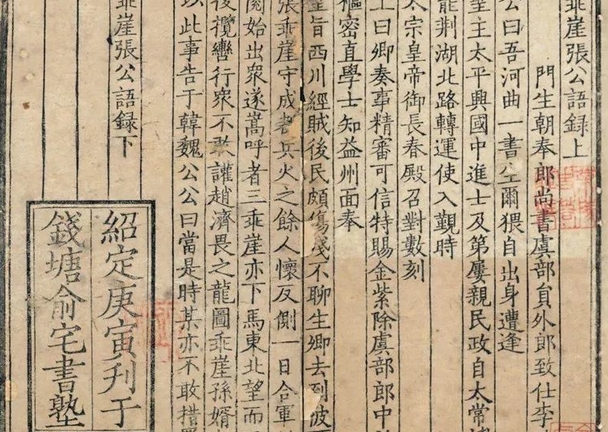 乖崖張公語錄上
門生朝奉郎尚書虞部員外郎致仕李
公曰吾河曲一書生爾猥自出身遭逢
聖主太平興國中進士及第屢親民政自太常
罷荆湖北路轉運使入覲時
太宗皇帝御長春殿召對數刻
上曰卿奏事精審可信特賜金紫除虞部郎中
樞密直學士知益州面奉
聖旨西川經賊後民頗傷殘不聊生卿去到彼
張乖崖守成都兵火之餘人懷反側一日合軍
閱始出衆遂嵩呼者三乖崖亦下馬東北望而
後攬轡行衆不敢讙趙濟畏之龍圖乖崖孫婿
以此事告于韓魏公公曰當是時某亦不敢措
乖崖張公語録下
紹定庚寅刋于
錢塘俞宅書塾